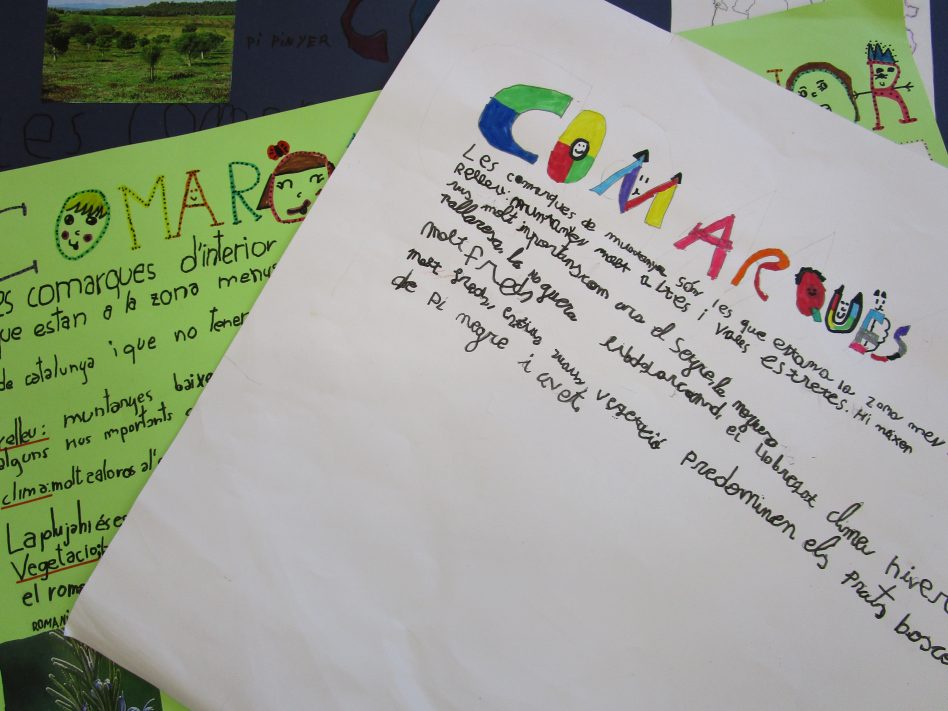 PI PINYER
COMARQUES
Les comarques de muntanya són les que estan a la zona men
Relleu muntanyes molt altres i valls estretes. Hi naixen
rius molt inportans com ara el Segre, la noguera
Pallaresa, la noguera el llobregat clima hivern
molt freds
molt freds, estius vegetació predominen els prats bosco
de pi negre i avet.
COMARQ
es comarques d'interior
que estan a la zona menys
de catalunya i que no tenen
relleu: muntanyes baixe
alguns rius importants
clima: molt caloros al'
La pluja hi és es
Vegetació:
el rom
ROMANI
OR